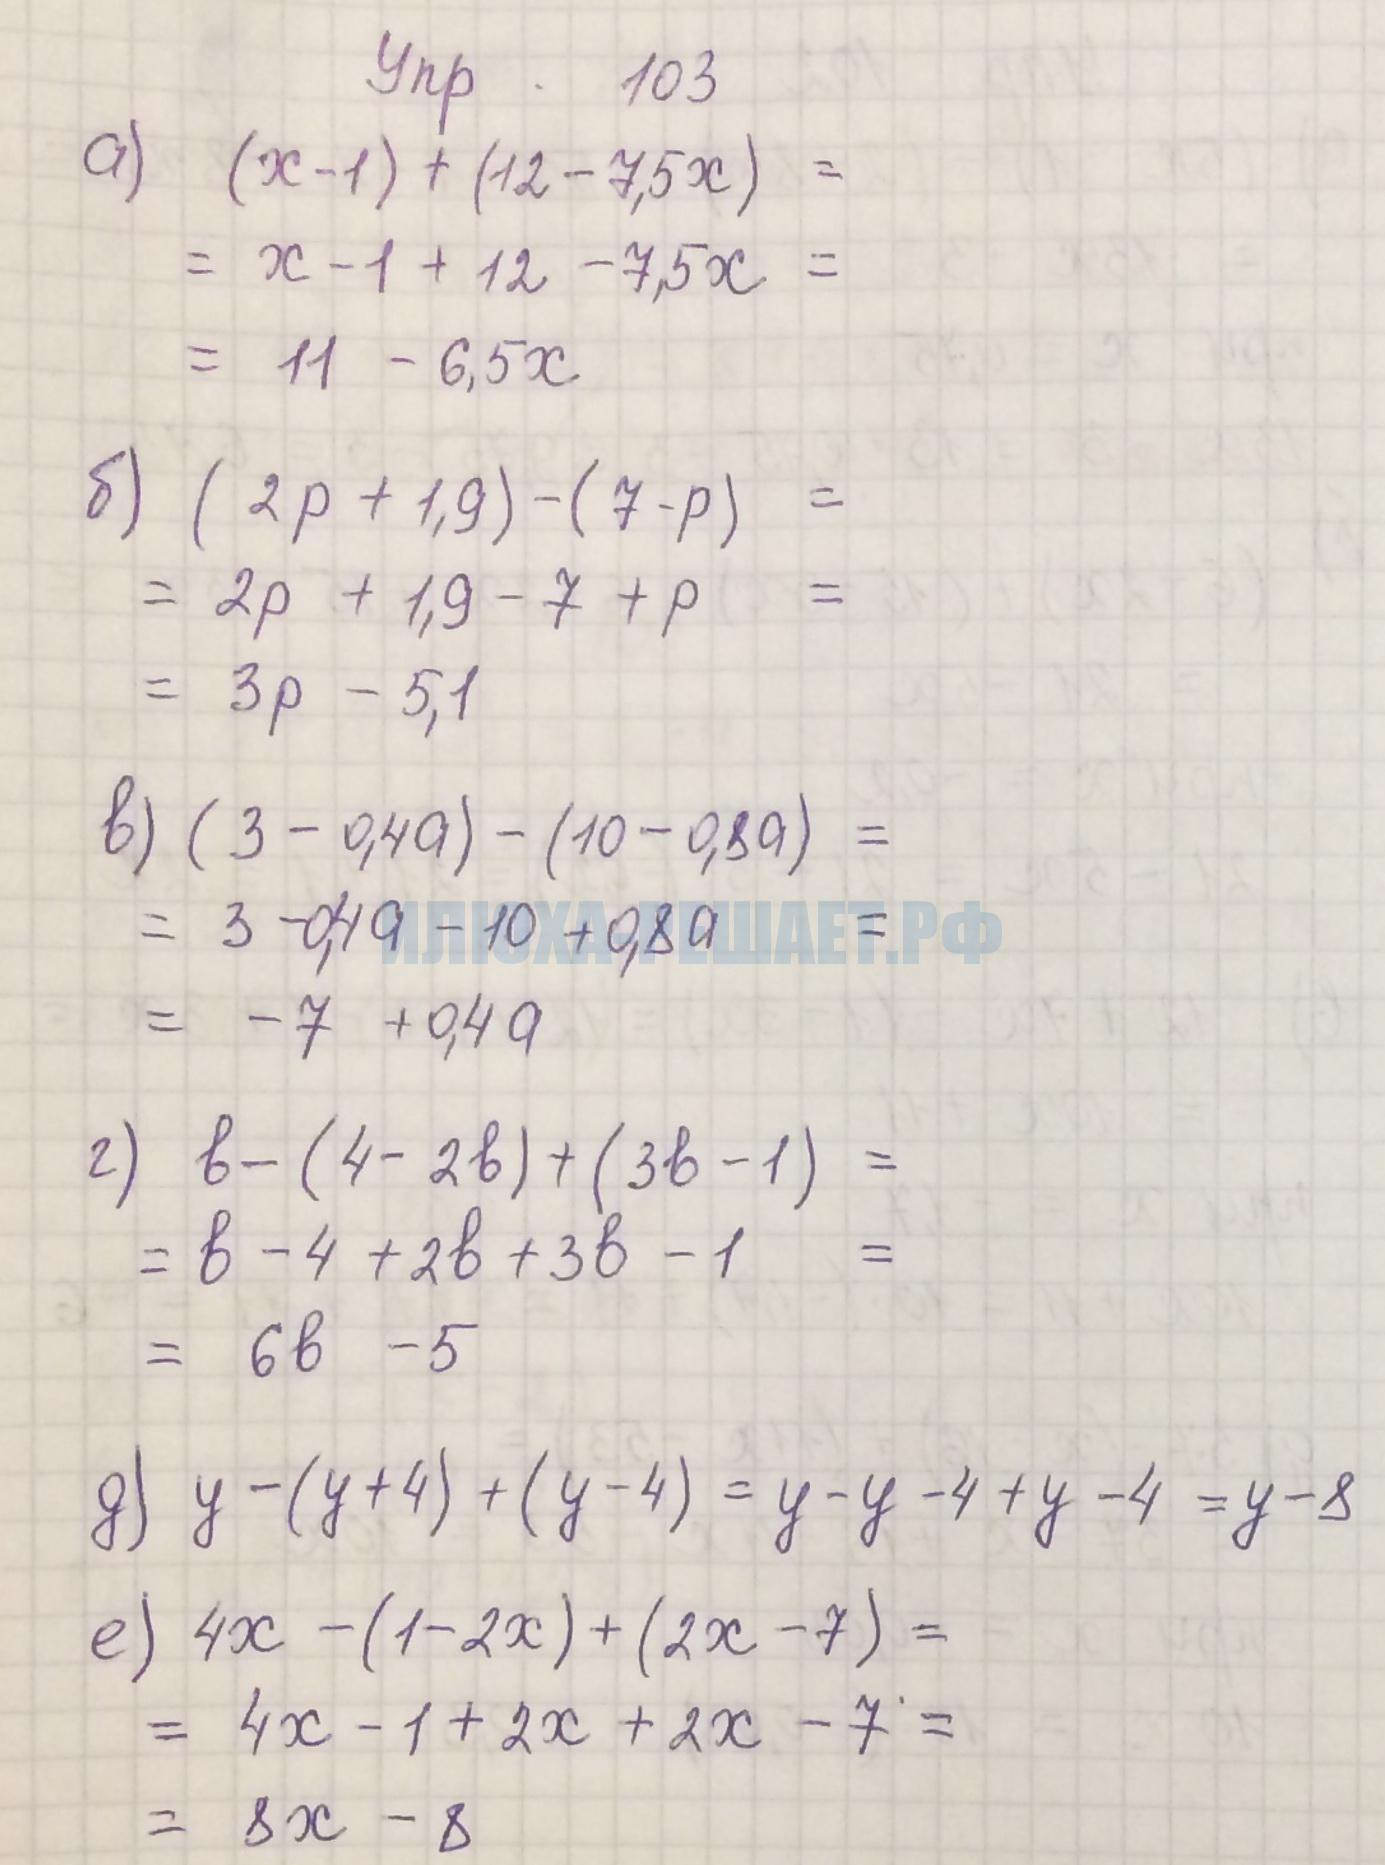 Упр. 103
а) (x-1) + (12-7,5x) =
= x-1 + 12 -7,5x =
= 11 - 6,5x
б) (2p + 1,9) - (7-p) =
= 2p + 1,9 - 7 + p =
= 3p - 5,1
в) (3 - 0,4a) - (10 - 0,8a) =
= 3 -0,4a - 10 + 0,8a =
ИЛЮХА-РЕШАЕТ.РФ
= -7 +0,4a
г) b - (4 - 2b) + (3b - 1) =
= b - 4 + 2b + 3b - 1 =
= 6b - 5
д) y - (y+4) + (y-4) = y-y-4+y-4 = y-8
е) 4x - (1-2x) + (2x-7) =
= 4x - 1 + 2x + 2x - 7 =
= 8x - 8